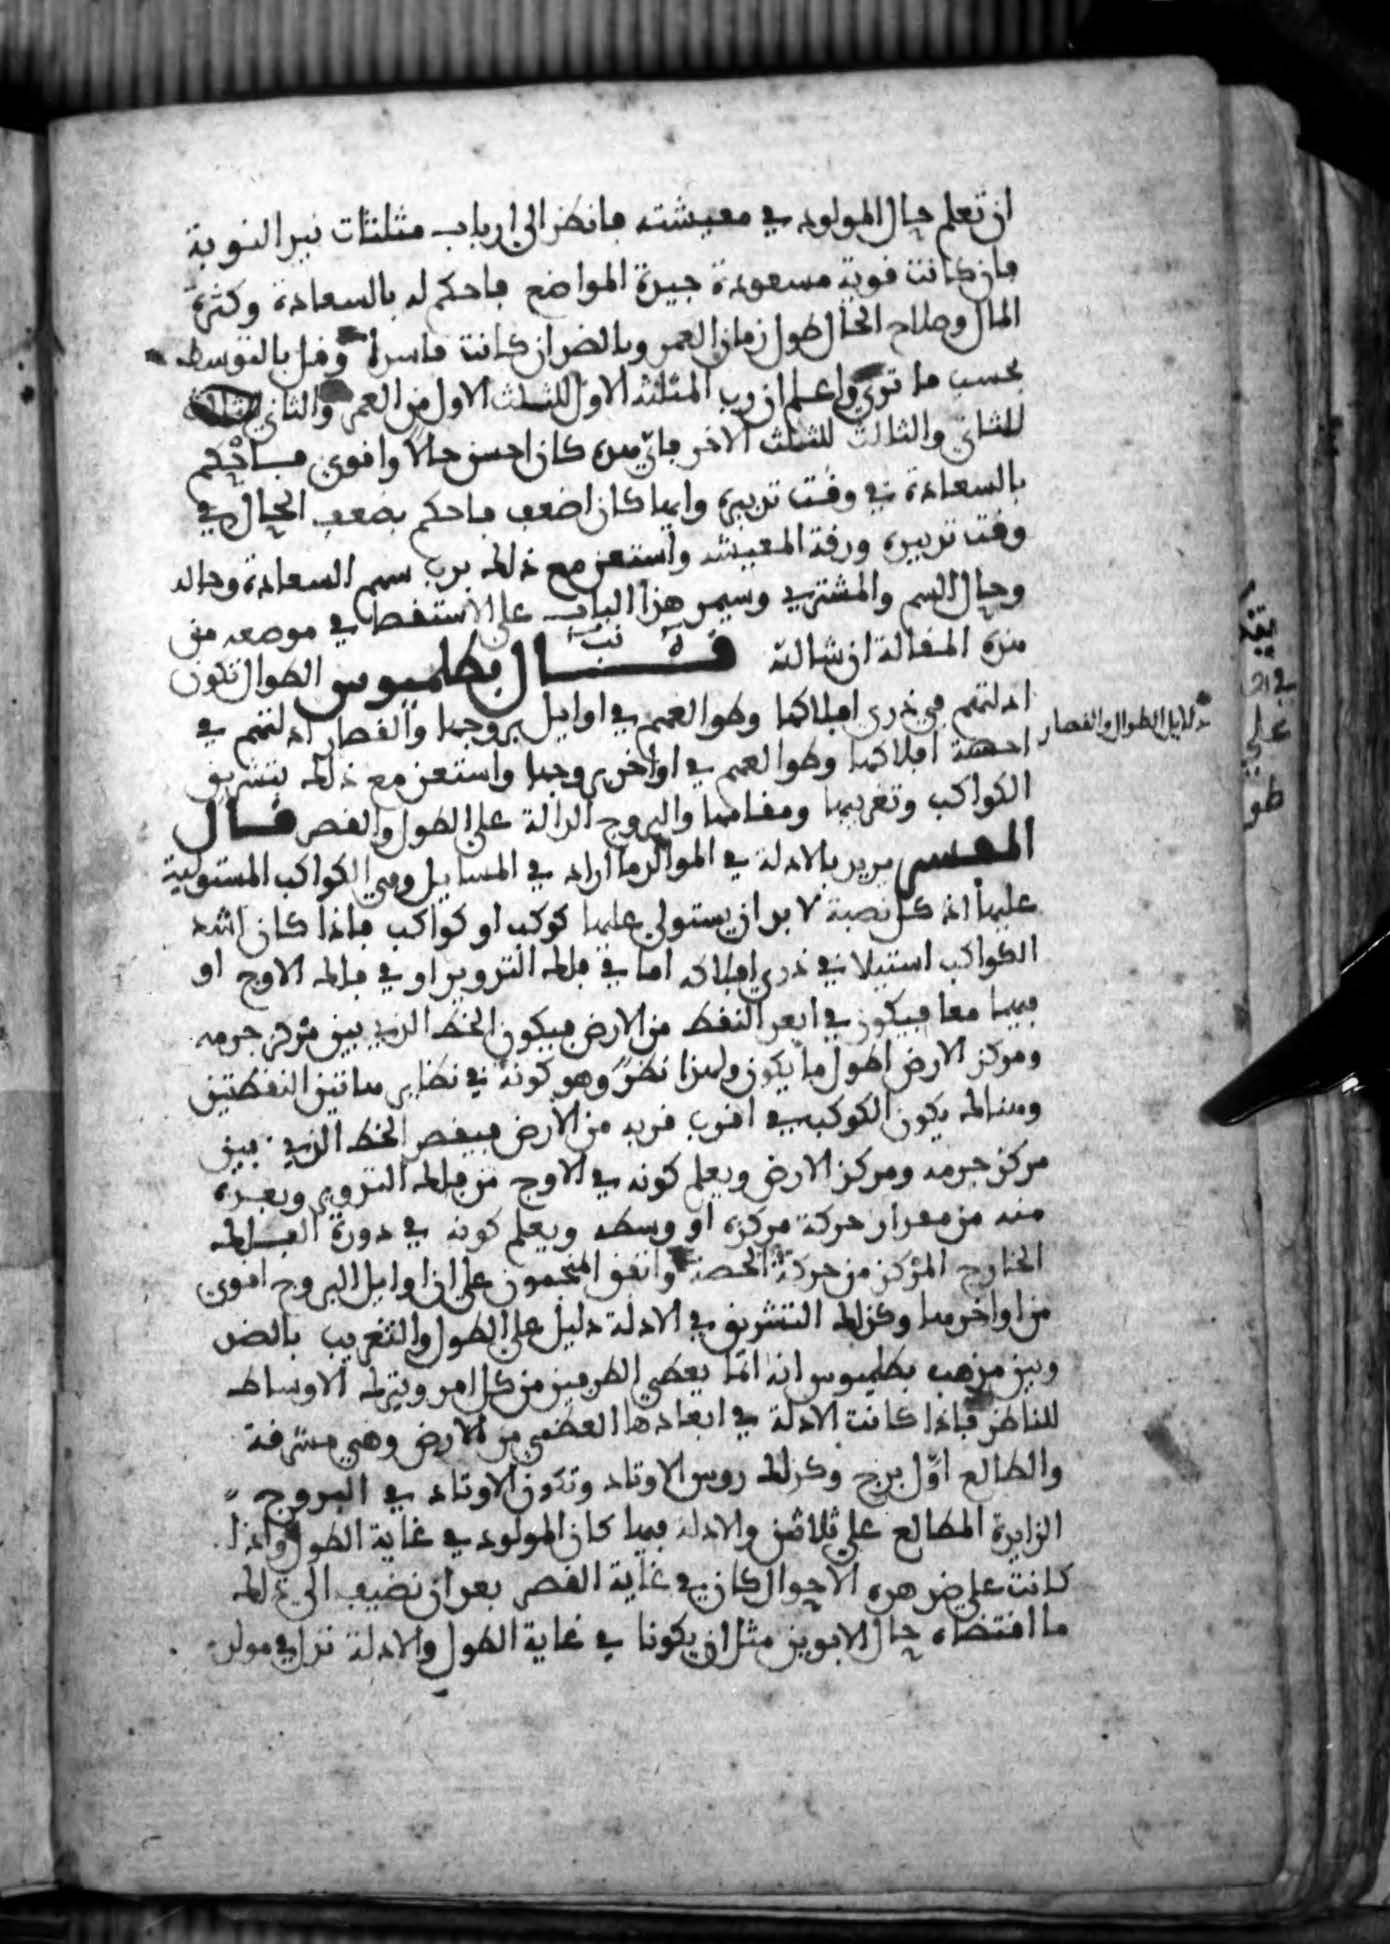 ان تعلم حال المولود في معيشته فانظر الى ارباب مثلثات نير النوبة
فان كانت قوية مسعودة جيدة المواضع فاحكم له بالسعادة وكثرة
المال وصلاح الحال طول زمان العمر وبالضد ان كانت فاسدة وقل بالتوسط
بحسب ما ترى واعلم ان رب المثلثة الاول للثلث الاول من العمر والثاني
للثاني والثالث للثلث الاخر فايهم كان احسن حالا واقوى فاحكم
بالسعادة في وقت تدبيره وايها كان اضعف فاحكم بضعف الحال في
وقت تدبيره ورقة المعيشة واستعن مع ذلك برب سهم السعادة وحاله
وحال السهم والمشتري وسيمر هذا الباب على الاستقصا في موضعه من
هذه المقالة ان شا الله
نب
قال بطلميوس الطوال تكون
ادلتهم في ذرى افلاكها وطوالعهم في اوايل بروجها والقصار ادلتهم في
دلايل الطوال والقصار
افلاكها وطوالعهم في اواخر بروجها واستعن مع ذلك بتشريق
الكواكب وتغريبها ومقامها والبروج الدالة على الطول والقصر قال
المفسر يريد بالادلة في المواليد ما اراد في المسايل وهي الكواكب المستولية
عليها اذ كل نصبة لا بد ان يستولي عليها كوكب او كواكب فاذا كان اشد
الكواكب استيلا في ذرى افلاكه اما في فلك التدوير او في فلك الاوج او
فيهما معا فيكون في ابعد النقط من الارض فيكون الخط الذي بين مركز جرمه
ومركز الارض اطول ما يكون ولهذا نظير وهو كونه في نظاير هاتين النقطتين
وهنالك يكون الكوكب في اقرب قربه من الارض فيقصر الخط الذي بين
مركز جرمه ومركز الارض ويعلم كونه في الاوج من فلك التدوير وبعده
منه من مقدار حركة مركزه او وسطه ويعلم كونه في دورة الفلك
الخارج المركز من حركة الخصة واتفق المنجمون على ان اوايل البروج اقوى
من اواخرها وكذلك التشريق في الادلة دليل على الطول والتغريب بالضد
وبين مذهب بطلميوس انه انما يعطي الطرفين من كل امر ويترك الاوساط
للناظر فاذا كانت الادلة في ابعادها العظمى من الارض وهي مشرقة
والطالع اول برج وكذلك روس الاوتاد وتكون الاوتاد في البروج
الزايدة المطالع على ثلاثين والادلة فيها كان المولود في غاية الطول واذا
كانت على ضد هذه الاحوال كان في غاية القصر بعد ان نضيف الى ذلك
ما اقتضاه حال الابوين مثل ان يكونا في غاية الطول والادلة تدل في مولد
في
على
طو